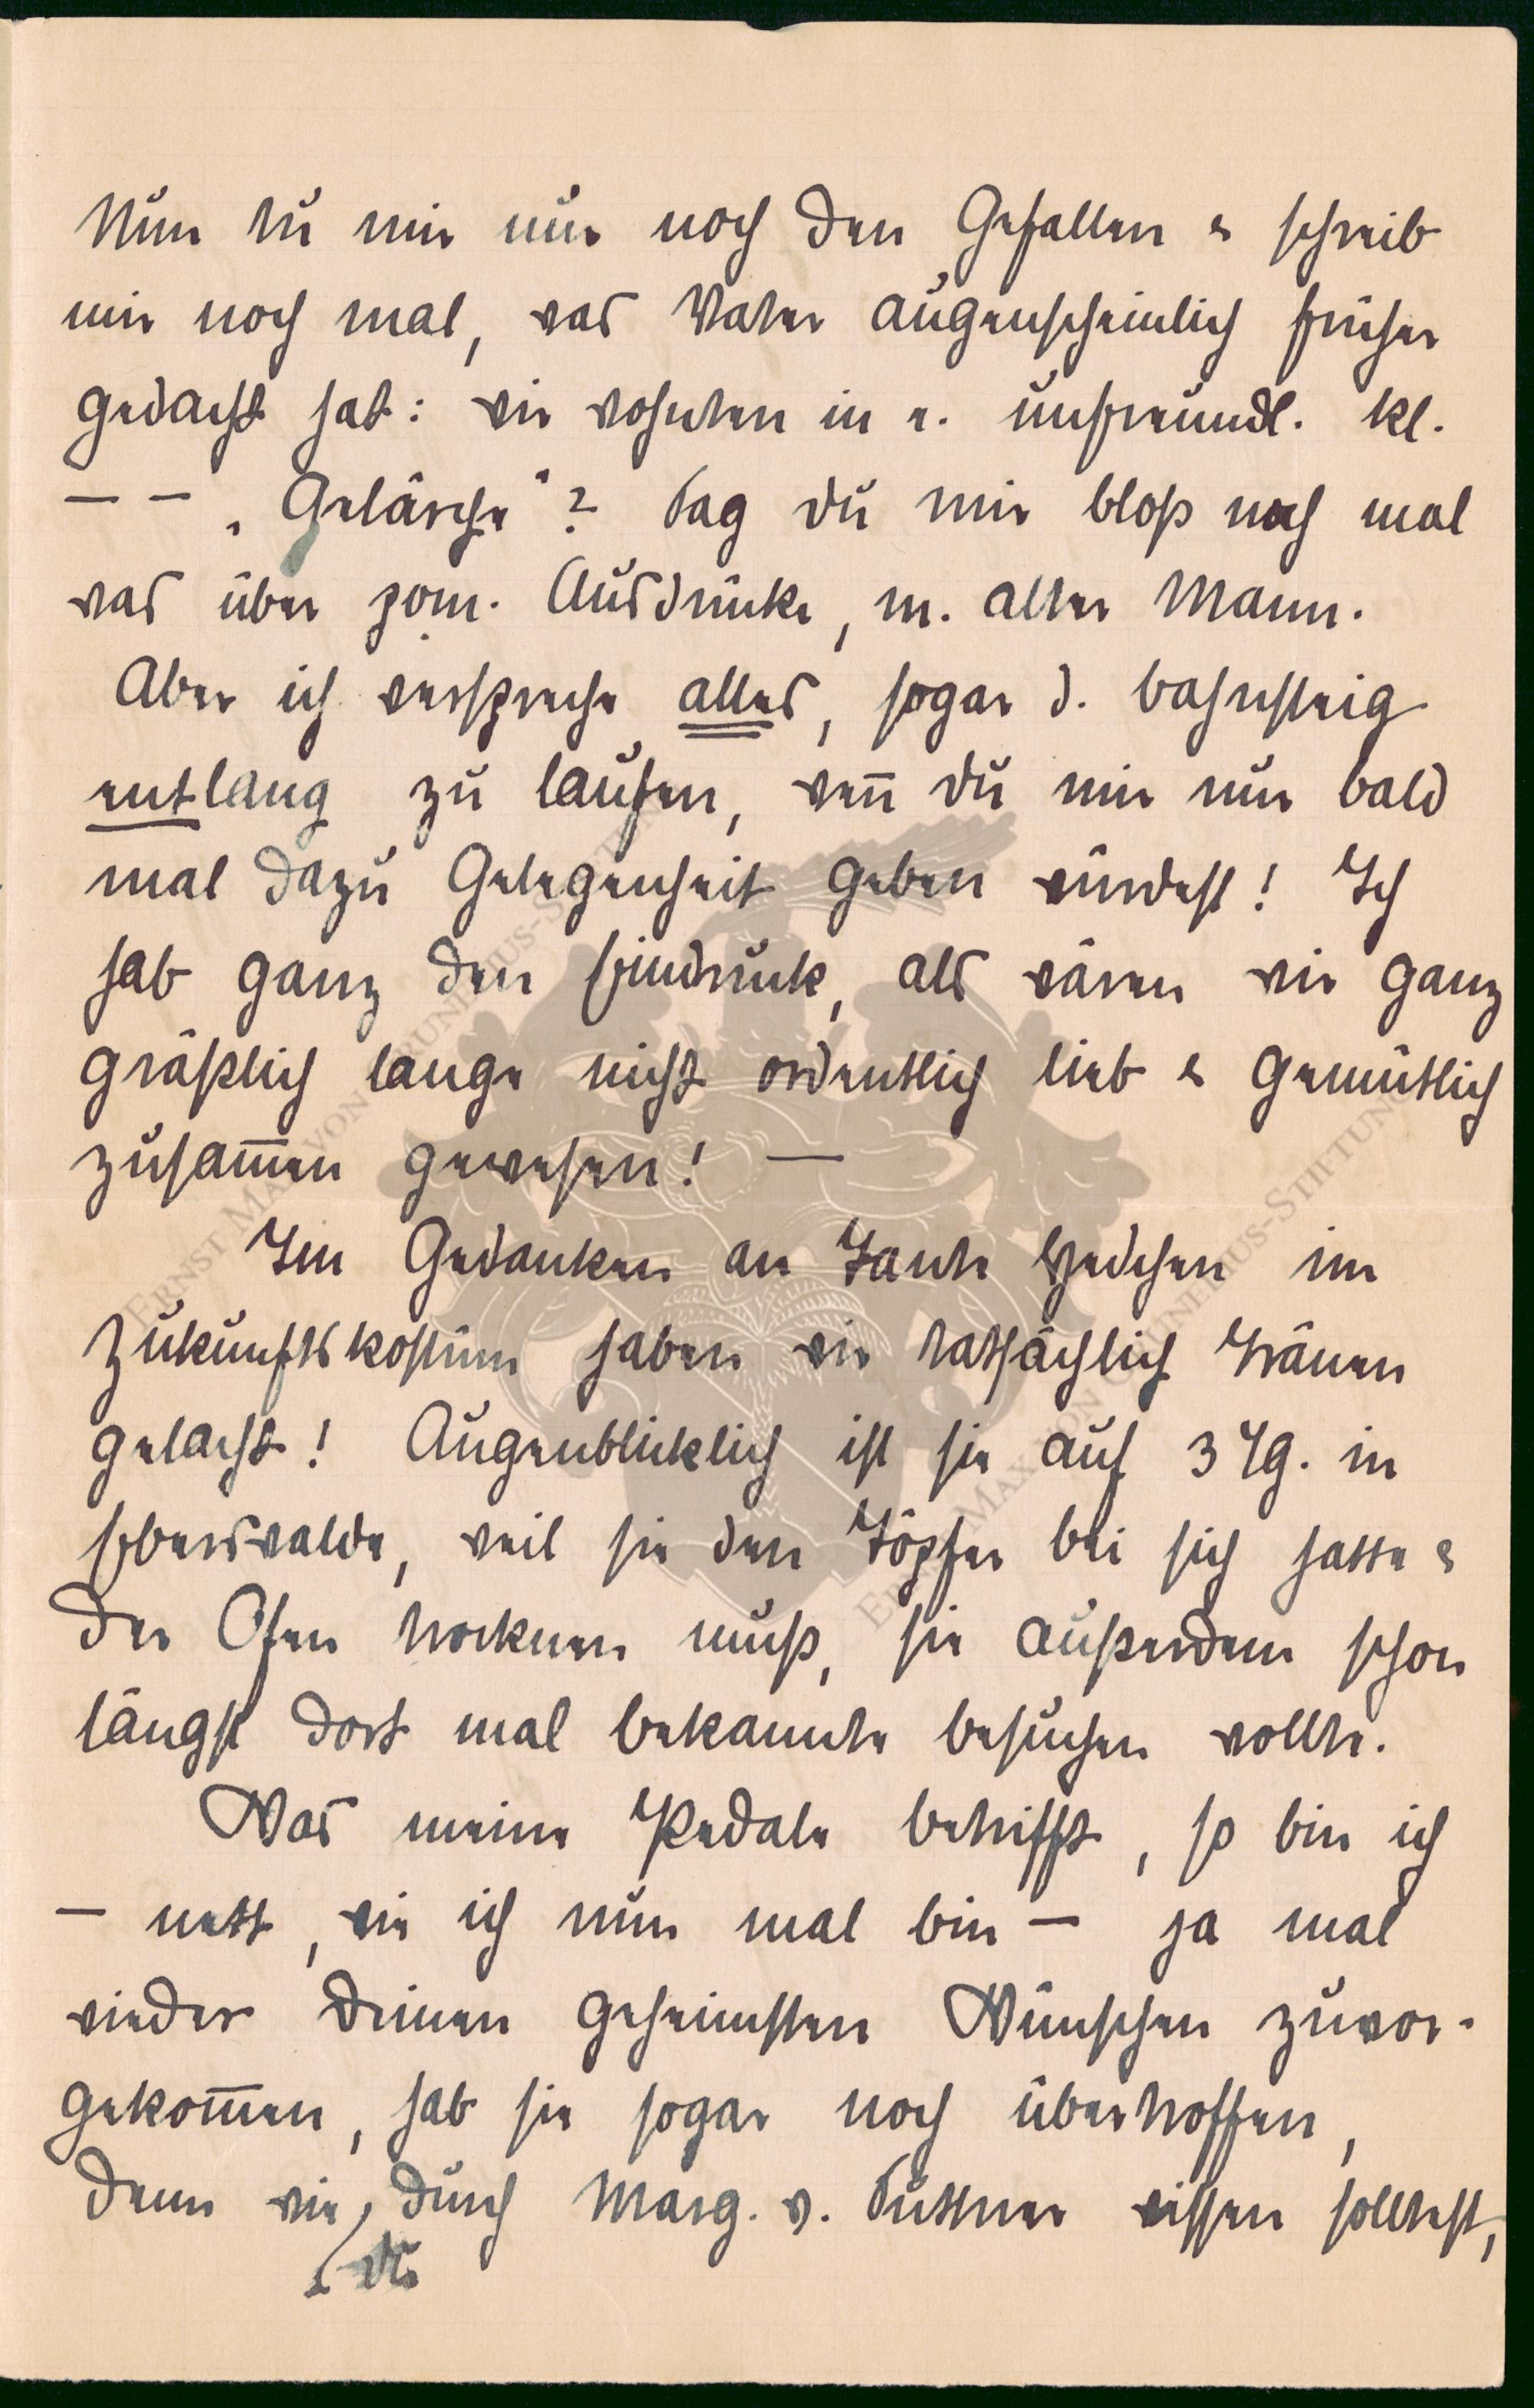 Nun tu mir nur noch den Gefallen & schreib
mir noch mal, was Vater augenscheinlich früher
gedacht hat: wir wohnten in e. unfreundl. kl.
— — „Gelärche"? Sag du mir bloß noch mal
was über pom. Ausdrücke, m. alter Mann.
Aber ich verspreche alles, sogar d. bahnsteig
entlang zu laufen, weñ du mir nur bald
mal dazu Gelegenheit geben würdest! Ich
hab ganz den Eindruck, als wären wir ganz
gräßlich lange nicht ordentlich lieb & gemütlich
zusam̄en gewesen! —
Im Gedanken an Tante Hedchen im
Zukunftskostüm haben wir tatsächlich Tränen
gelacht! Augenblicklich ist sie auf 3 Tg. in
Eberswalde, weil sie den Töpfer bei sich hatte &
der Ofen trocknen muß, sie außerdem schon
längst dort mal bekannte besuchen wollte.
Was meine Pedale betrifft, so bin ich
— nett, wie ich nun mal bin — ja mal
wieder Deinen geheimsten Wünschen zuvor-
gekom̄en, hab sie sogar noch übertroffen,
denn wie durch Marg. v. Puttner wissen solltest,
du